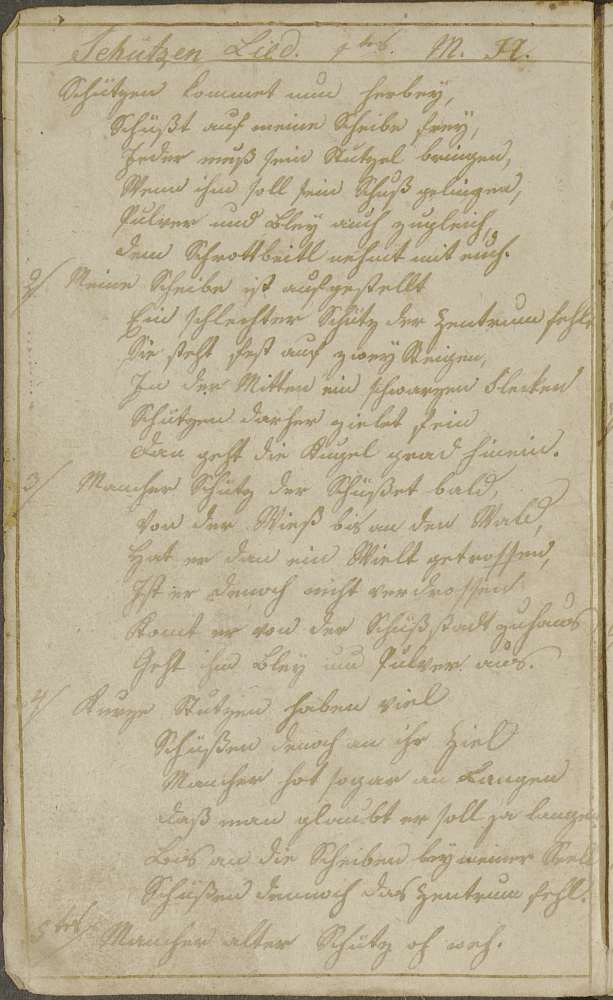 Schützen Lied. 1tes. M. H.
Schützen kommet nun herbey,
Schüßt auf meine Scheibe frey,
Jeder muß sein Stutzel bringen,
Wenn ihm soll sein Schuß gelingen,
Pulver und Bley auch zugleich,
dem Schrottbeitl nehmt mit euch.
2/ Meine Scheibe ist aufgestellt
Ein schlechter Schütz der Zentrum fehlt
Sie steht fest auf zwey Steigen,
In der Mitten ein schwarzen Flecken
Schützen darher zielet fein
dan geht die Kugel grad hinein.
3/ Mancher Schütz der Schüßet bald,
Von der Wieß bis an den Wald,
Hat er dan ein Wielt getroffen,
Ist er denoch nicht verdrossen
Komt er von der Schüßstadt zuhaus
Geht ihm Bley und Pulver aus.
4/ Kurze Stutzen haben viel
Schüßen denoch an ihr Ziel
Mancher hot sogar an Langen
daß man glaubt er soll ja langen
Bis an die Scheiben bey meiner Seel
Schüßen dennoch das Zentrum fehl.
5tes/ Mancher alter Schütz oh weh.